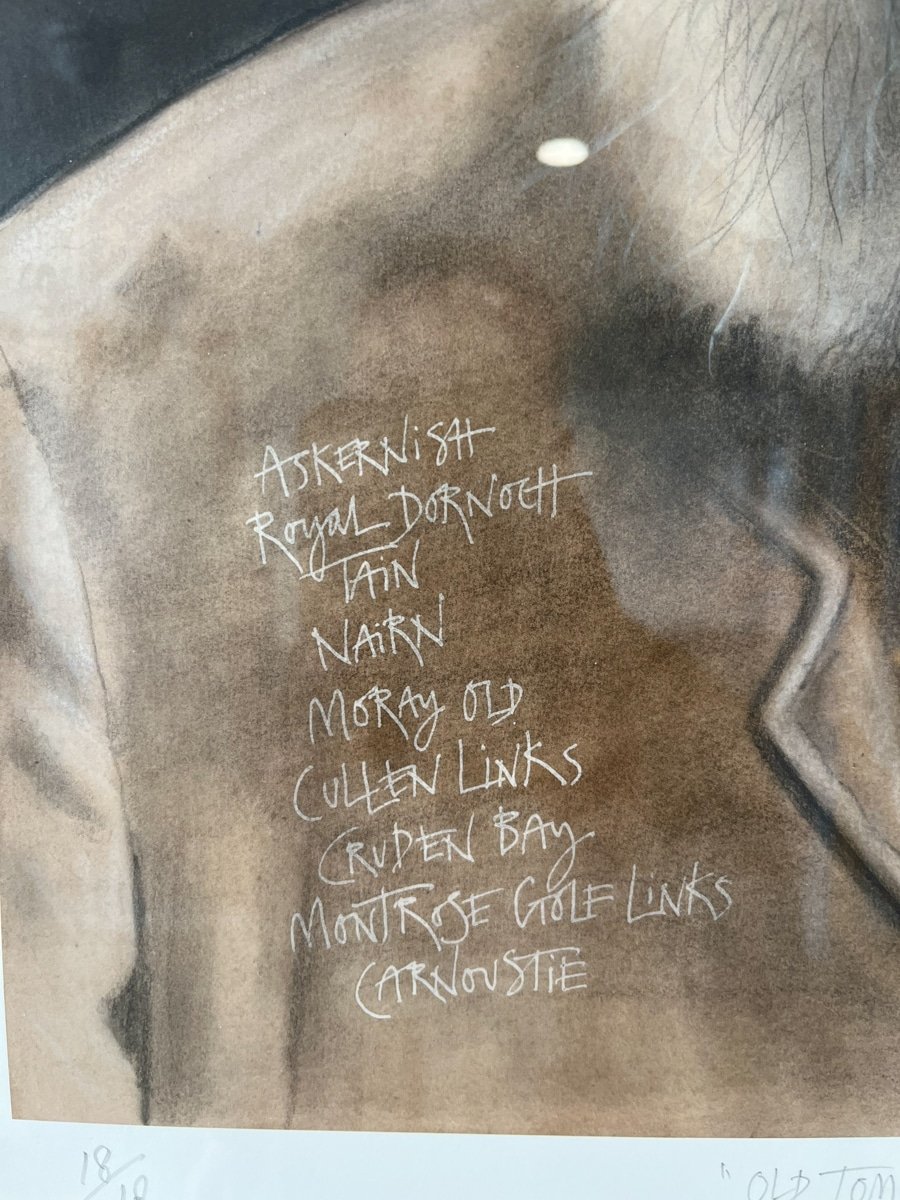 ASKERNISH
ROYAL DORNOCH
TAIN
NAIRN
MORAY OLD
CULLEN LINKS
CRUDEN BAY
MONTROSE GOLF LINKS
CARNOUSTIE
18/18 "OLD TOM